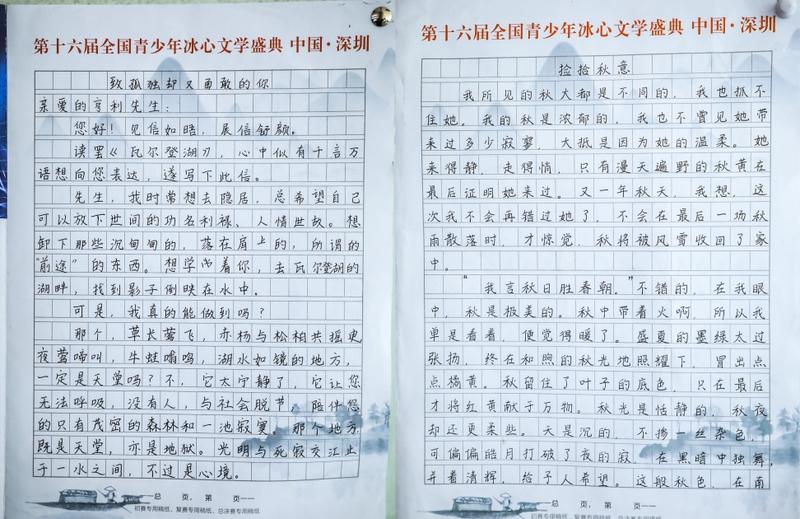 第十六届全国青少年冰心文学盛典 中国·深圳
致孤独却又勇敢的你
亲爱的亨利先生：
您好！见信如晤，展信舒颜。
读罢《瓦尔登湖》，心中似有千言万
语想向您表达，遂写下此信。
先生，我时常想去隐居，总希望自己
可以放下世间的功名利禄、人情世故。想
卸下那些沉甸甸的，落在肩上的，所谓的
“前途”的东西。想学着你，去瓦尔登湖的
湖畔，找到影子倒映在水中。
可是，我真的能做到吗？
那个，草长莺飞，赤杨与松柏共摇曳
夜莺啼叫，牛蛙嗡鸣，湖水如镜的地方，
一定是天堂吗？不，它太宁静了，它让您
无法呼吸，没有人，与社会脱节，陪伴您
的只有茂密的森林和一池寂寞，那个地方
既是天堂，亦是地狱。光明与死寂交江止
于一水之间，不过是心境。
总 页，第 页
初赛专用稿纸，复赛专用稿纸，总决赛专用稿纸
第十六届全国青少年冰心文学盛典 中国·深圳
捡拾秋意
我所见的秋大都是不同的，我也抓不
住她。我的秋是浓郁的，我也不曾见她带
来过多少寂寥，大抵是因为她的温柔。她
来得静，走得悄，只有漫天遍野的秋黄在
最后证明她来过。又一年秋天，我想，这
次我不会再错过她了，不会在最后一场秋
雨散落时，才惊觉，秋将被风雪收回了家
中。
“我言秋日胜春朝。”不错的，在我眼
中，秋是极美的。秋中带着火啊，所以我
单是看着，便觉得暖了。盛夏的墨绿太过
张扬，终在和煦的秋光地照耀下，冒出点
点橘黄。秋留住了叶子的底色，只在最后
才将红黄献于万物。秋光是恬静的，秋夜
却还更柔些。天是沉的，不掺一丝杂色，
可偏偏皓月打破了夜的寂，在黑暗中独舞，
并着清辉，给予人希望。这般秋色，在南
总 页，第 页
初赛专用稿纸，复赛专用稿纸，总决赛专用稿纸